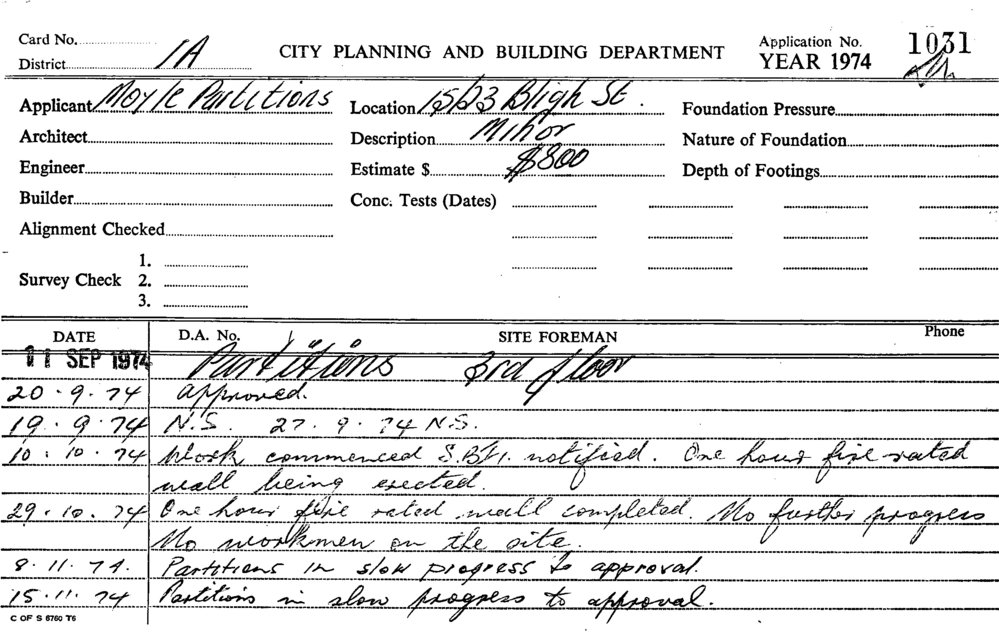 Card No.
District 1A
CITY PLANNING AND BUILDING DEPARTMENT
Application No. 1031
YEAR 1974
Applicant Moyle Partitions
Location 15/23 Bligh St.
Foundation Pressure
Architect
Description Minor
Nature of Foundation
Engineer
Estimate $ $800
Depth of Footings
Builder
Conc. Tests (Dates)
Alignment Checked
Survey Check 1.
2.
3.
DATE D.A. No. SITE FOREMAN Phone
11 SEP 1974 Partitions 3rd floor
20.9.74 approved.
19.9.74 N.S. 27.9.74 N.S.
10.10.74 Work commenced notified. One hour fire rated
wall being erected.
29.10.74 One hour fire rated wall completed. No further progress
No workmen on the site.
8.11.74. Partitions in slow progress to approval.
15.11.74 Partitions in slow progress to approval.
C OF S 6760 T6